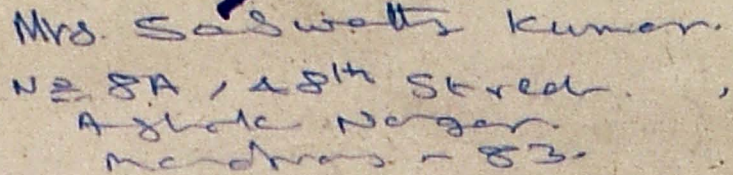 Mrs. Saswathy Kumar.
No 8A, 48th Street.
Ashok Nagar.
Madras - 83.